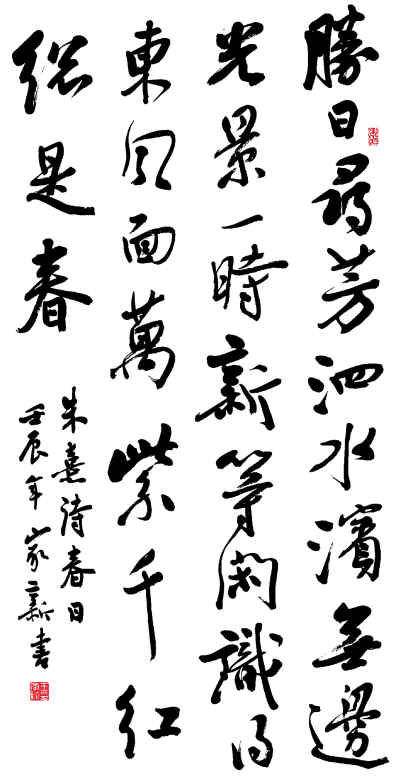 勝日尋芳泗水濱無邊
光景一時新等閑識得
東風面萬紫千紅
總是春
朱熹詩春日
壬辰年家新書